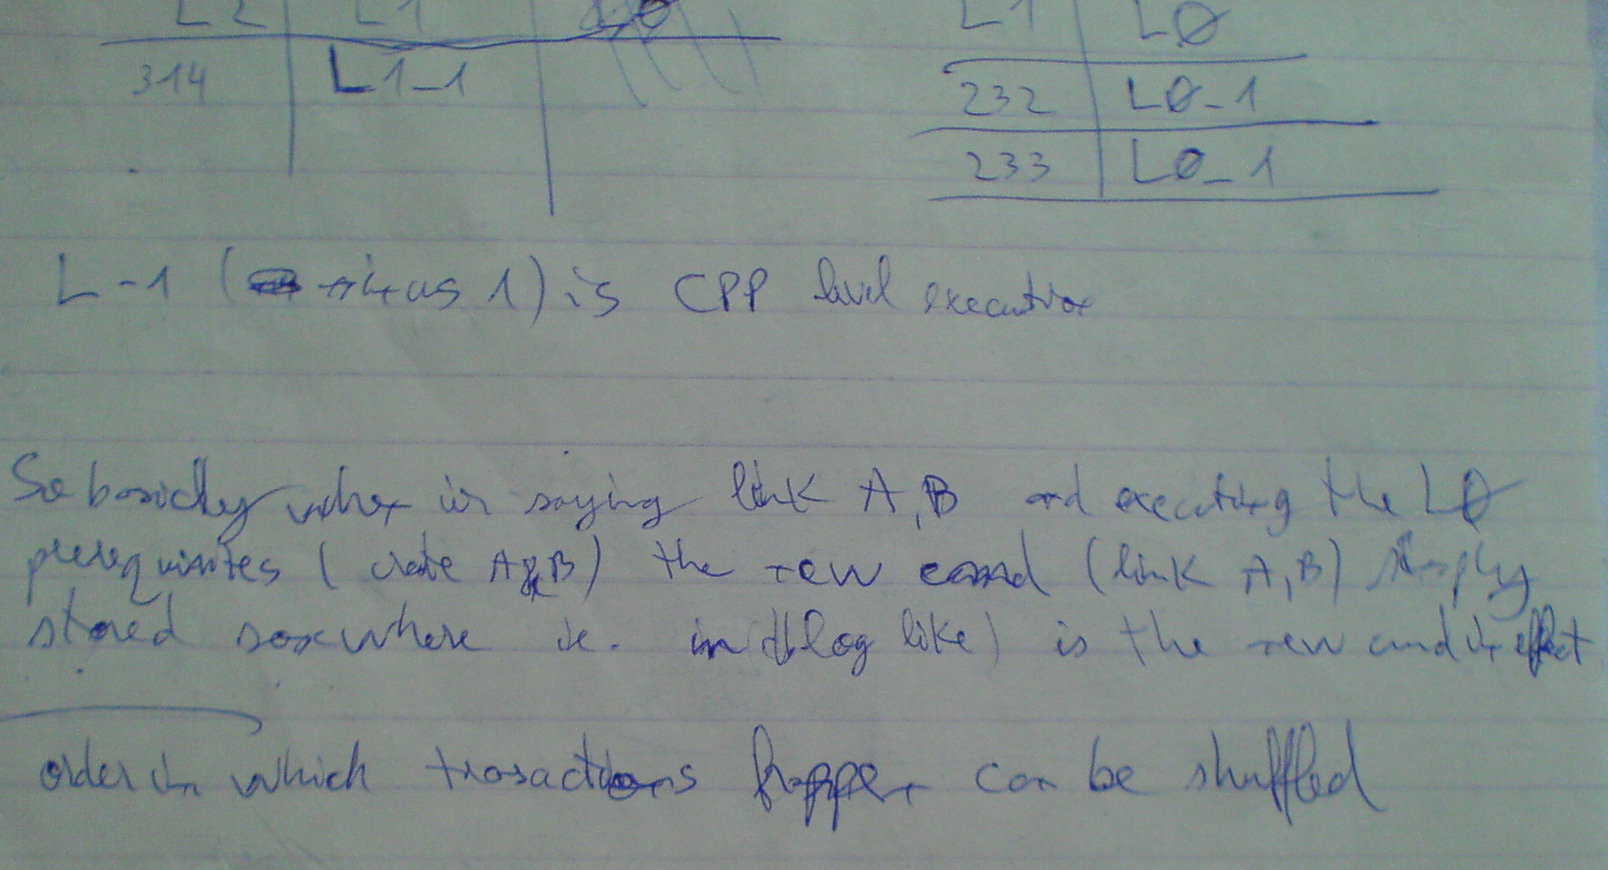 L2 L1 LØ
314 L1_1
L1 LØ
232 LØ_1
233 LØ_1
L-1 (minus 1) is CPP level execution
So basicley when ur saying link A,B and executing the LØ
prerequisites ( create A&B) the new comd (link A,B) simply
stored somewhere ie. in dblog like) is the new cmd in effect
order in which trasactions happen can be shuffled